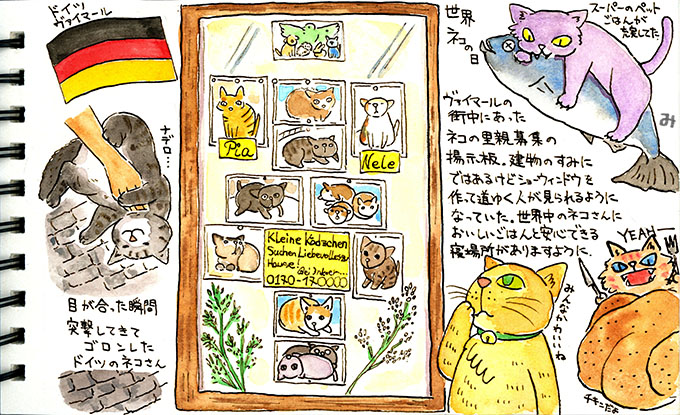 ドイツ
ヴァイマール
ナデロ…
目が合った瞬間
突撃してきて
ゴロンした
ドイツのネコさん
Pia
Nele
Kleine Kädzchen
Suchen Liebevolles
Hause!
0170-170000
世界
ネコの日
スーパーのペット
ごはんが
充実してた
み
ヴァイマールの
街中にあった
ネコの里親募集の
掲示板。建物のすみに
ではあるけどショーウィンドウを
作って道ゆく人が見られるように
なっていた。世界中のネコさんに
おいしいごはんと安心できる
寝場所がありますように。
みんなかわいいね
YEAH
チキンだよ